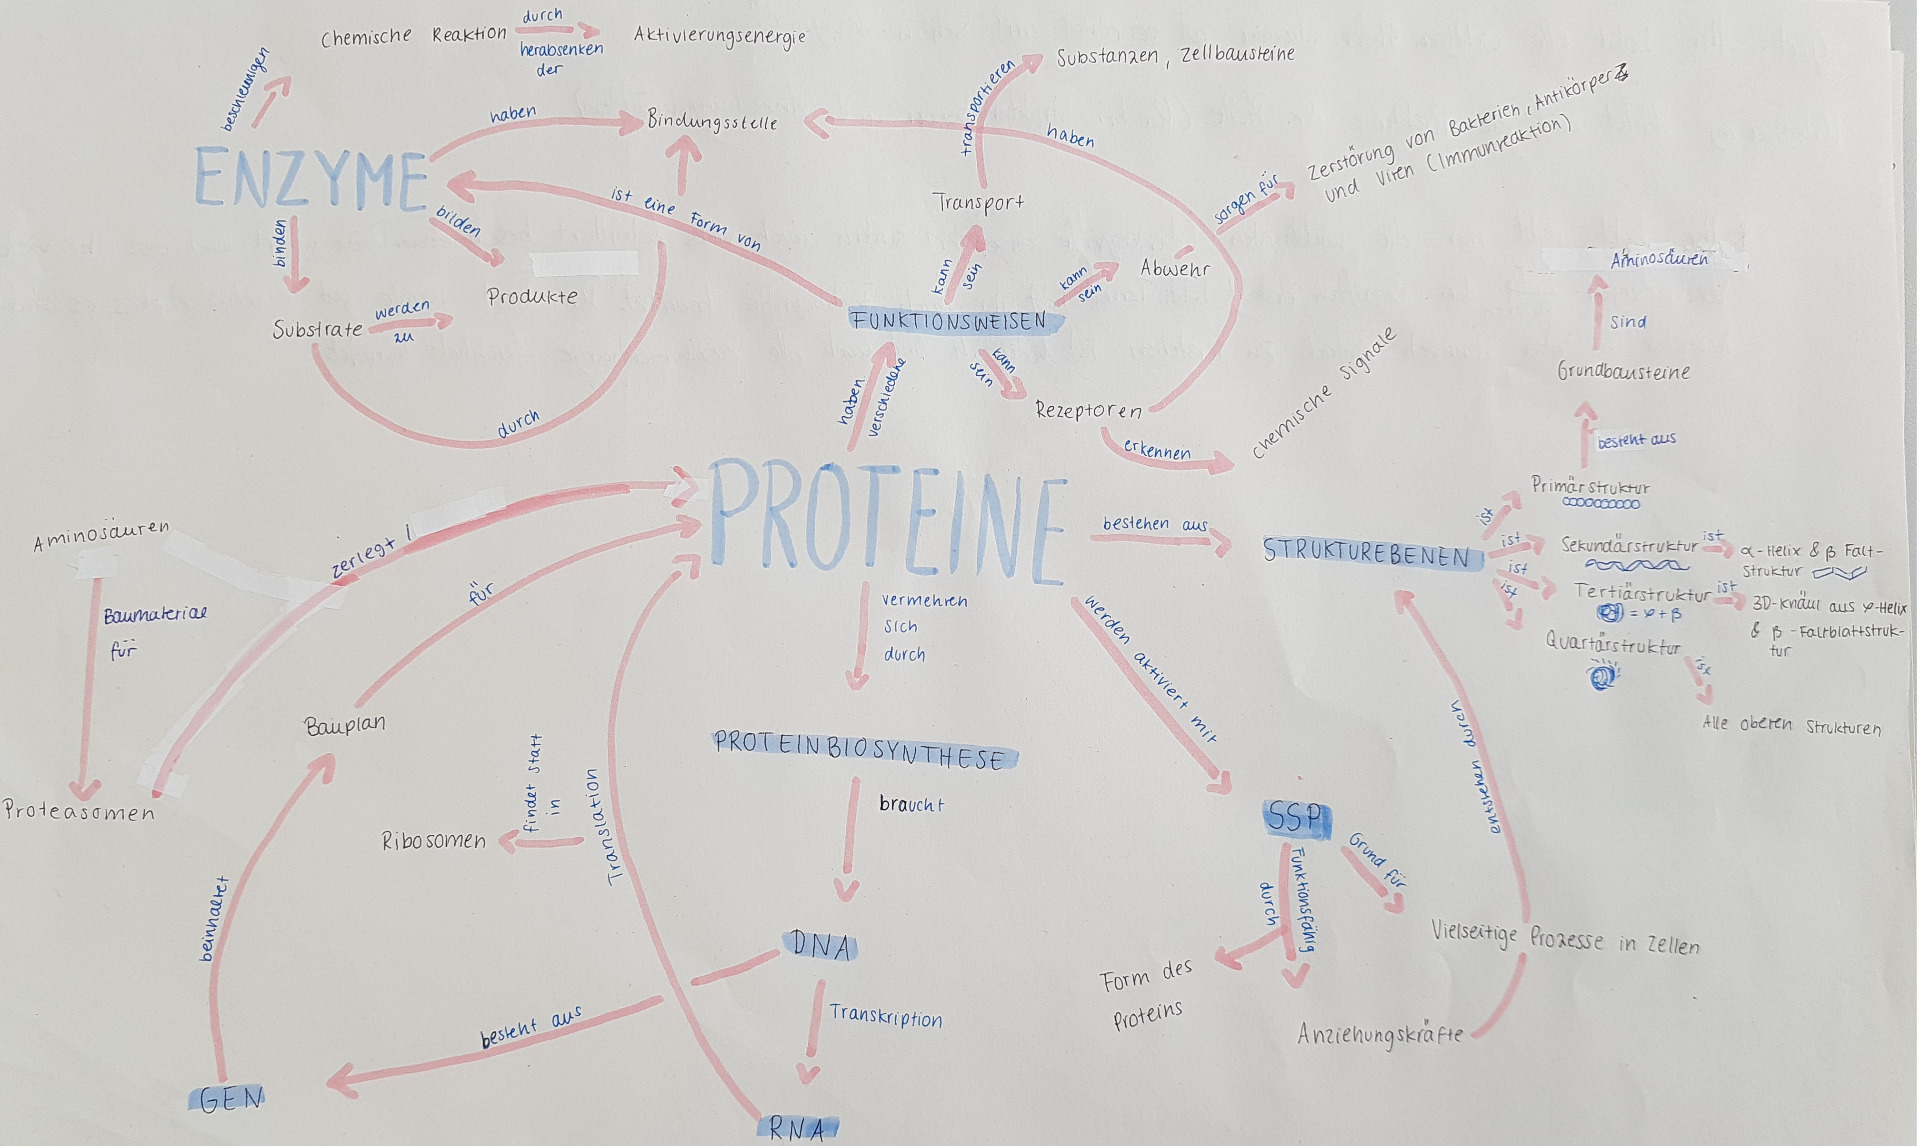 Chemische Reaktion
durch
herabsenken
der
Aktivierungsenergie
beschleunigen
haben
Bindungsstelle
transportieren
Substanzen, Zellbausteine
haben
ENZYME
ist eine Form von
Transport
sorgen für
Zerstörung von Bakterien, Antikörper
und Viren (Immunreaktion)
binden
bilden
Produkte
Substrate
werden
zu
durch
kann
sein
kann
sein
Abwehr
FUNKTIONSWEISEN
kann
sein
haben
verschiedene
Rezeptoren
erkennen
chemische Signale
Aminosäuren
sind
Grundbausteine
besteht aus
Primärstruktur
PROTEINE
bestehen aus
STRUKTUREBENEN
ist
ist
Sekundärstruktur
ist
α-Helix & β Falt-
struktur
ist
Tertiärstruktur
= φ + β
ist
3D-Knäul aus φ-Helix
& β-Faltblattstruk-
tur
ist
Quartärstruktur
ist
Alle oberen Strukturen
Aminosäuren
zerlegt
Baumaterial
für
Proteasomen
für
Bauplan
vermehren
sich
durch
werden aktiviert mit
PROTEINBIOSYNTHESE
findet statt
in
Ribosomen
Translation
braucht
SSP
Grund für
Funktionsfähig
durch
Form des
Proteins
Vielseitige Prozesse in Zellen
entstehen durch
Anziehungskräfte
beinhaltet
DNA
besteht aus
Transkription
GEN
RNA